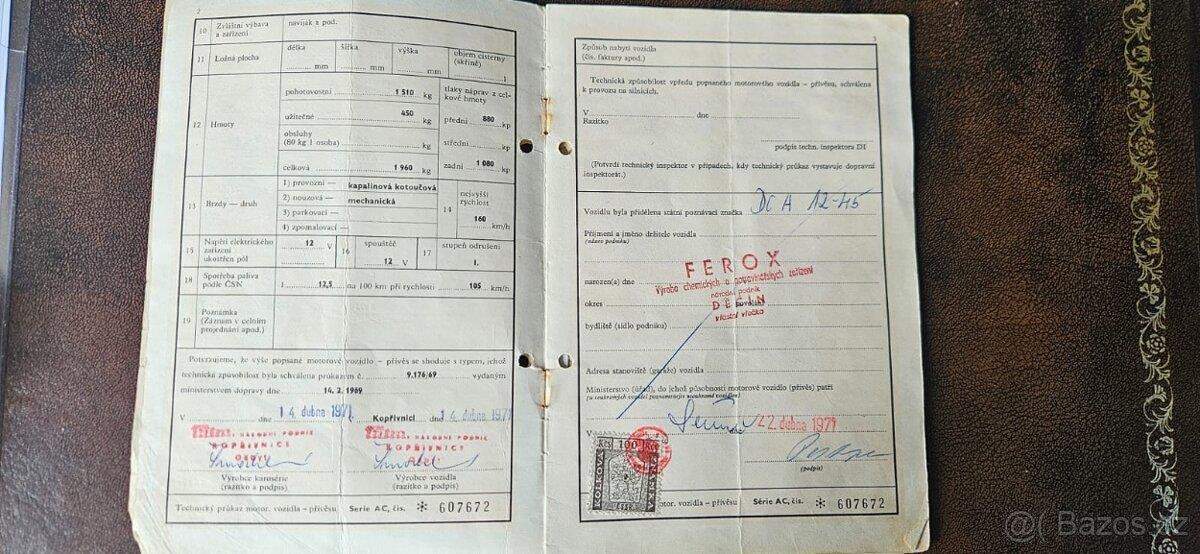 2
10 Zvláštní výbava a zařízení
naviják a pod.
11 Ložná plocha
délka
mm
šířka
mm
výška
mm
objem cisterny (skříně)
l
12 Hmoty
pohotovostní 1 510 kg
užitečné 450 kg
obsluhy
(80 kg 1 osoba) kg
celková 1 960 kg
tlaky náprav z celkové hmoty
přední 880 kp
střední kp
zadní 1 080 kp
13 Brzdy — druh
1) provozní — kapalinová kotoučová
2) nouzová — mechanická
3) parkovací —
4) zpomalovací —
14 nejvyšší rychlost
160
km/h
15 Napětí elektrického zařízení
ukostřen pól
12 V
16 spouštěče
12 V
17 stupeň odrušení
I.
18 Spotřeba paliva podle ČSN
l 12,5 na 100 km při rychlosti 105 km/h
19 Poznámka
(Záznam v celním projednání apod.)
Potvrzujeme, že výše popsané motorové vozidlo – přívěs se shoduje s typem, jehož
technická způsobilost byla schválena průkazem č. 9.176/69 vydaným
ministerstvem dopravy dne 14. 2. 1969
V dne 14. dubna 1971 Kopřivnici dne 14. dubna 1971
NÁRODNÍ PODNIK
KOPŘIVNICE
NÁRODNÍ PODNIK
KOPŘIVNICE
Výrobce karosérie
(razítko a podpis)
Výrobce vozidla
(razítko a podpis)
Technický průkaz motor. vozidla – přívěsu Série AC, čís. * 607672
3
Způsob nabytí vozidla
(čís. faktury apod.)
Technická způsobilost vpředu popsaného motorového vozidla – přívěsu, schválena
k provozu na silnicích.
V dne
Razítko
podpis techn. inspektora DI
(Potvrdí technický inspektor v případech, kdy technický průkaz vystavuje dopravní
inspektorát.)
Vozidlu byla přidělena státní poznávací značka DC A 12-45
Příjmení a jméno držitele vozidla
(název podniku)
FEROX
Výroba chemických a potravinářských zařízení
národní podnik
DĚČÍN
vlastní vlečka
narozen(a) dne
okres
bydliště (sídlo podniku)
Adresa stanoviště (garáže) vozidla
Ministerstvo (úřad), do jehož působnosti motorové vozidlo (přívěs) patří
22. dubna 1971
(podpis)
Kčs 100 Kčs
KOLKOVÁ
ZNÁMKA
ČSSR
motor. vozidla – přívěsu Série AC, čís. * 607672
@( Bazos.cz